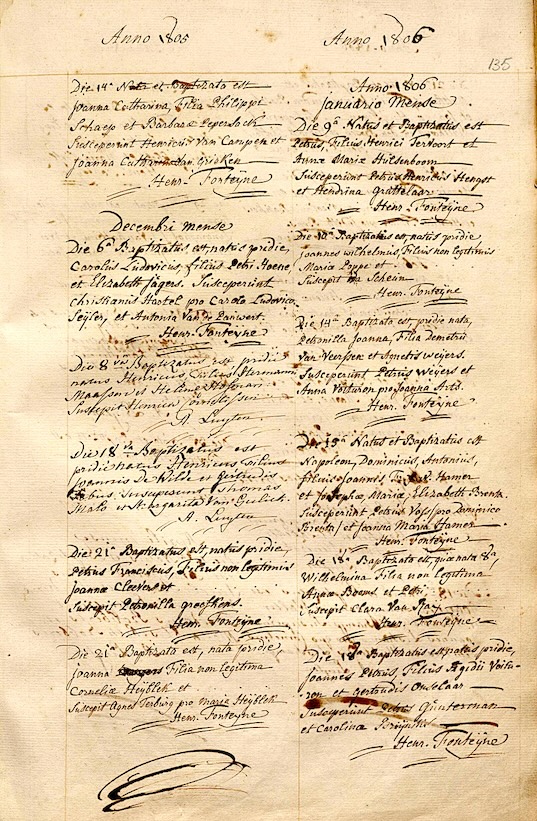 Anno 1805
Anno 1806
135
Die 14ª Nata et Baptizata est
Joanna Catharina, Filia Philippi
Schaep et Barbaræ Pepersack
Susceperunt Henricus Van Campen et
Joanna Cathrina Van Gricken
Henr. Fonteÿne
Decembri mense
Die 6ª Baptizatus est, natus pridie,
Carolus Ludovicus, filius Petri Hoene,
et Elizabeth Jagers. Susceperunt
christianus Hartel pro Carolo Ludovico
Seÿler, et Antonia Van de Pauwert.
Henr. Fonteÿne
Die 8va Baptizatus est pridie
natus Henricus, filius Hermanni
Maassen et Helenæ
Suscepit Henrica
A Luyten
Die 18va Baptizatus est
pridie natus Henricus filius
Joannis De Wilde et Gertrudis
Susceperunt Thomas
Malo et Margarita Van
A. Luyten
Die 21ª Baptizatus est, natus pridie,
Petrus Franciscus, Filius non legitimus
Joannæ Cleevers et
Suscepit Petronilla groofkens.
Henr. Fonteÿne
Die 21ª Baptizata est, nata pridie,
Joanna Filia non legitima
Corneliæ Heÿblek et
Suscepit Agnes Terburg pro maria Heÿblek
Henr. Fonteÿne
Anno 1806
Januario Mense
Die 9ª Natus et Baptizatus est
Petrus, Filius Henrici Tervoort et
Annæ Mariæ Hülsenboom
Susceperunt Petrus Henricus Hengst
et Hendrina Grattelaar
Henr. Fonteÿne
Die 10ª Baptizatus est, natus pridie
Joannes wilhelmus, Filius non legitimus
Mariæ Poppe et
Suscepit Schein
Henr. Fonteÿne
Die 14ª Baptizata est, pridie nata,
Petronilla Joanna, Filia Demetrii
Van Veerssen et Agnetis weÿers.
Susceperunt Petrus Weÿers et
Anna Voituron pro Joanna Arts.
Henr. Fonteÿne
Die 15ª Natus et Baptizatus est
Napoleon, Dominicus, Antonius,
filius Joannis Hamer
et Josephæ, Mariæ, Elizabeth Brenta.
Susceperunt Petrus Voss pro Dominico
Brenta, et Joanna Maria Hamer
Henr. Fonteÿne
Die 18ª Baptizata est, quæ nata 8ª,
Wilhelmina. Filia non legitima
Annæ Booms et Petri
Suscepit Clara Van
Henr. Fonteÿne
Die 18ª Baptizatus est, natus pridie,
Joannes Petrus, Filius Ægidii Voitu-
ron et Gertrudis Outelaar
Susceperunt Petrus Quaterman
et Carolina
Henr. Fonteÿne